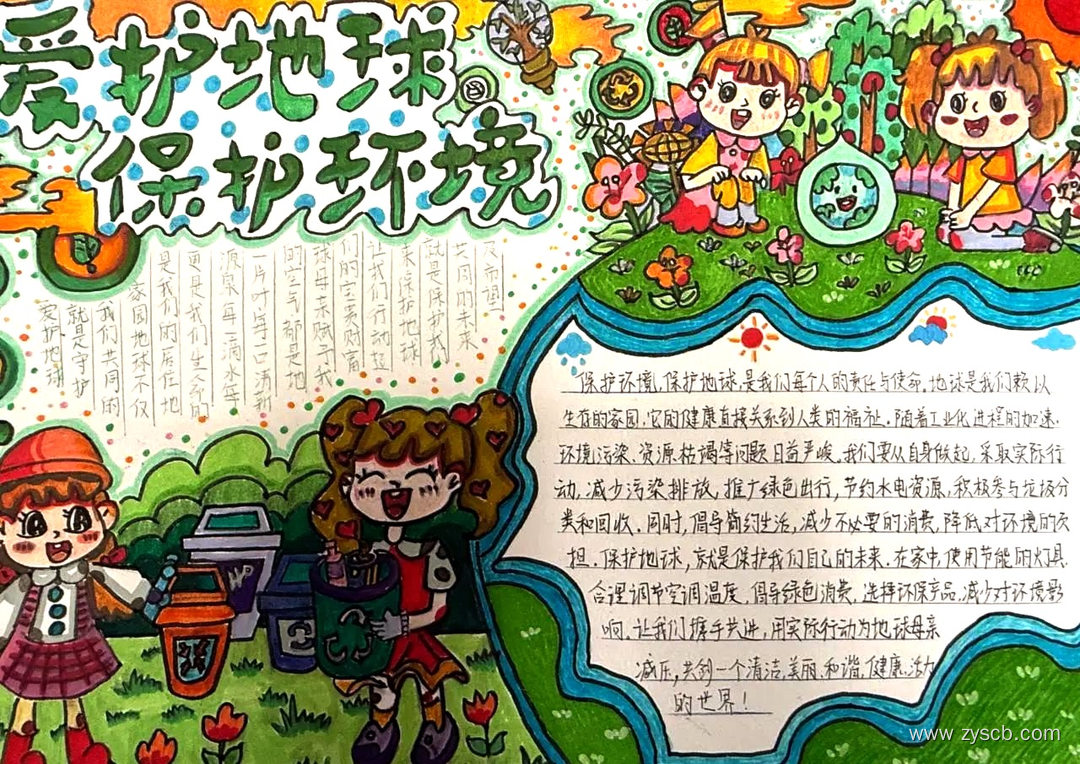 爱护地球
保护环境
爱护地球
就是守护
我们共同的
家园地球不仅
是我们的居住地
更是我们生命的
源泉每一滴水每
一片叶每一口清新
的空气都是地
球母亲赋予我
们的宝贵财富
让我们行动起
来保护地球
就是保护我们
共同的未来
及希望
保护环境,保护地球,是我们每个人的责任与使命.地球是我们赖以
生存的家园.它的健康直接关系到人类的福祉.随着工业化进程的加速.
环境污染.资源枯竭等问题日益严峻.我们要从自身做起,采取实际行
动,减少污染排放,推广绿色出行,节约水电资源,积极参与垃圾分
类和回收.同时,倡导简约生活,减少不必要的消费,降低对环境的负
担.保护地球,就是保护我们自己的未来.在家中,使用节能的灯具.
合理调节空调温度,倡导绿色消费,选择环保产品,减少对环境影
响.让我们携手共进,用实际行动为地球母亲
减压,共创一个清洁,美丽.和谐,健康.活力
的世界!
www.zyscb.com